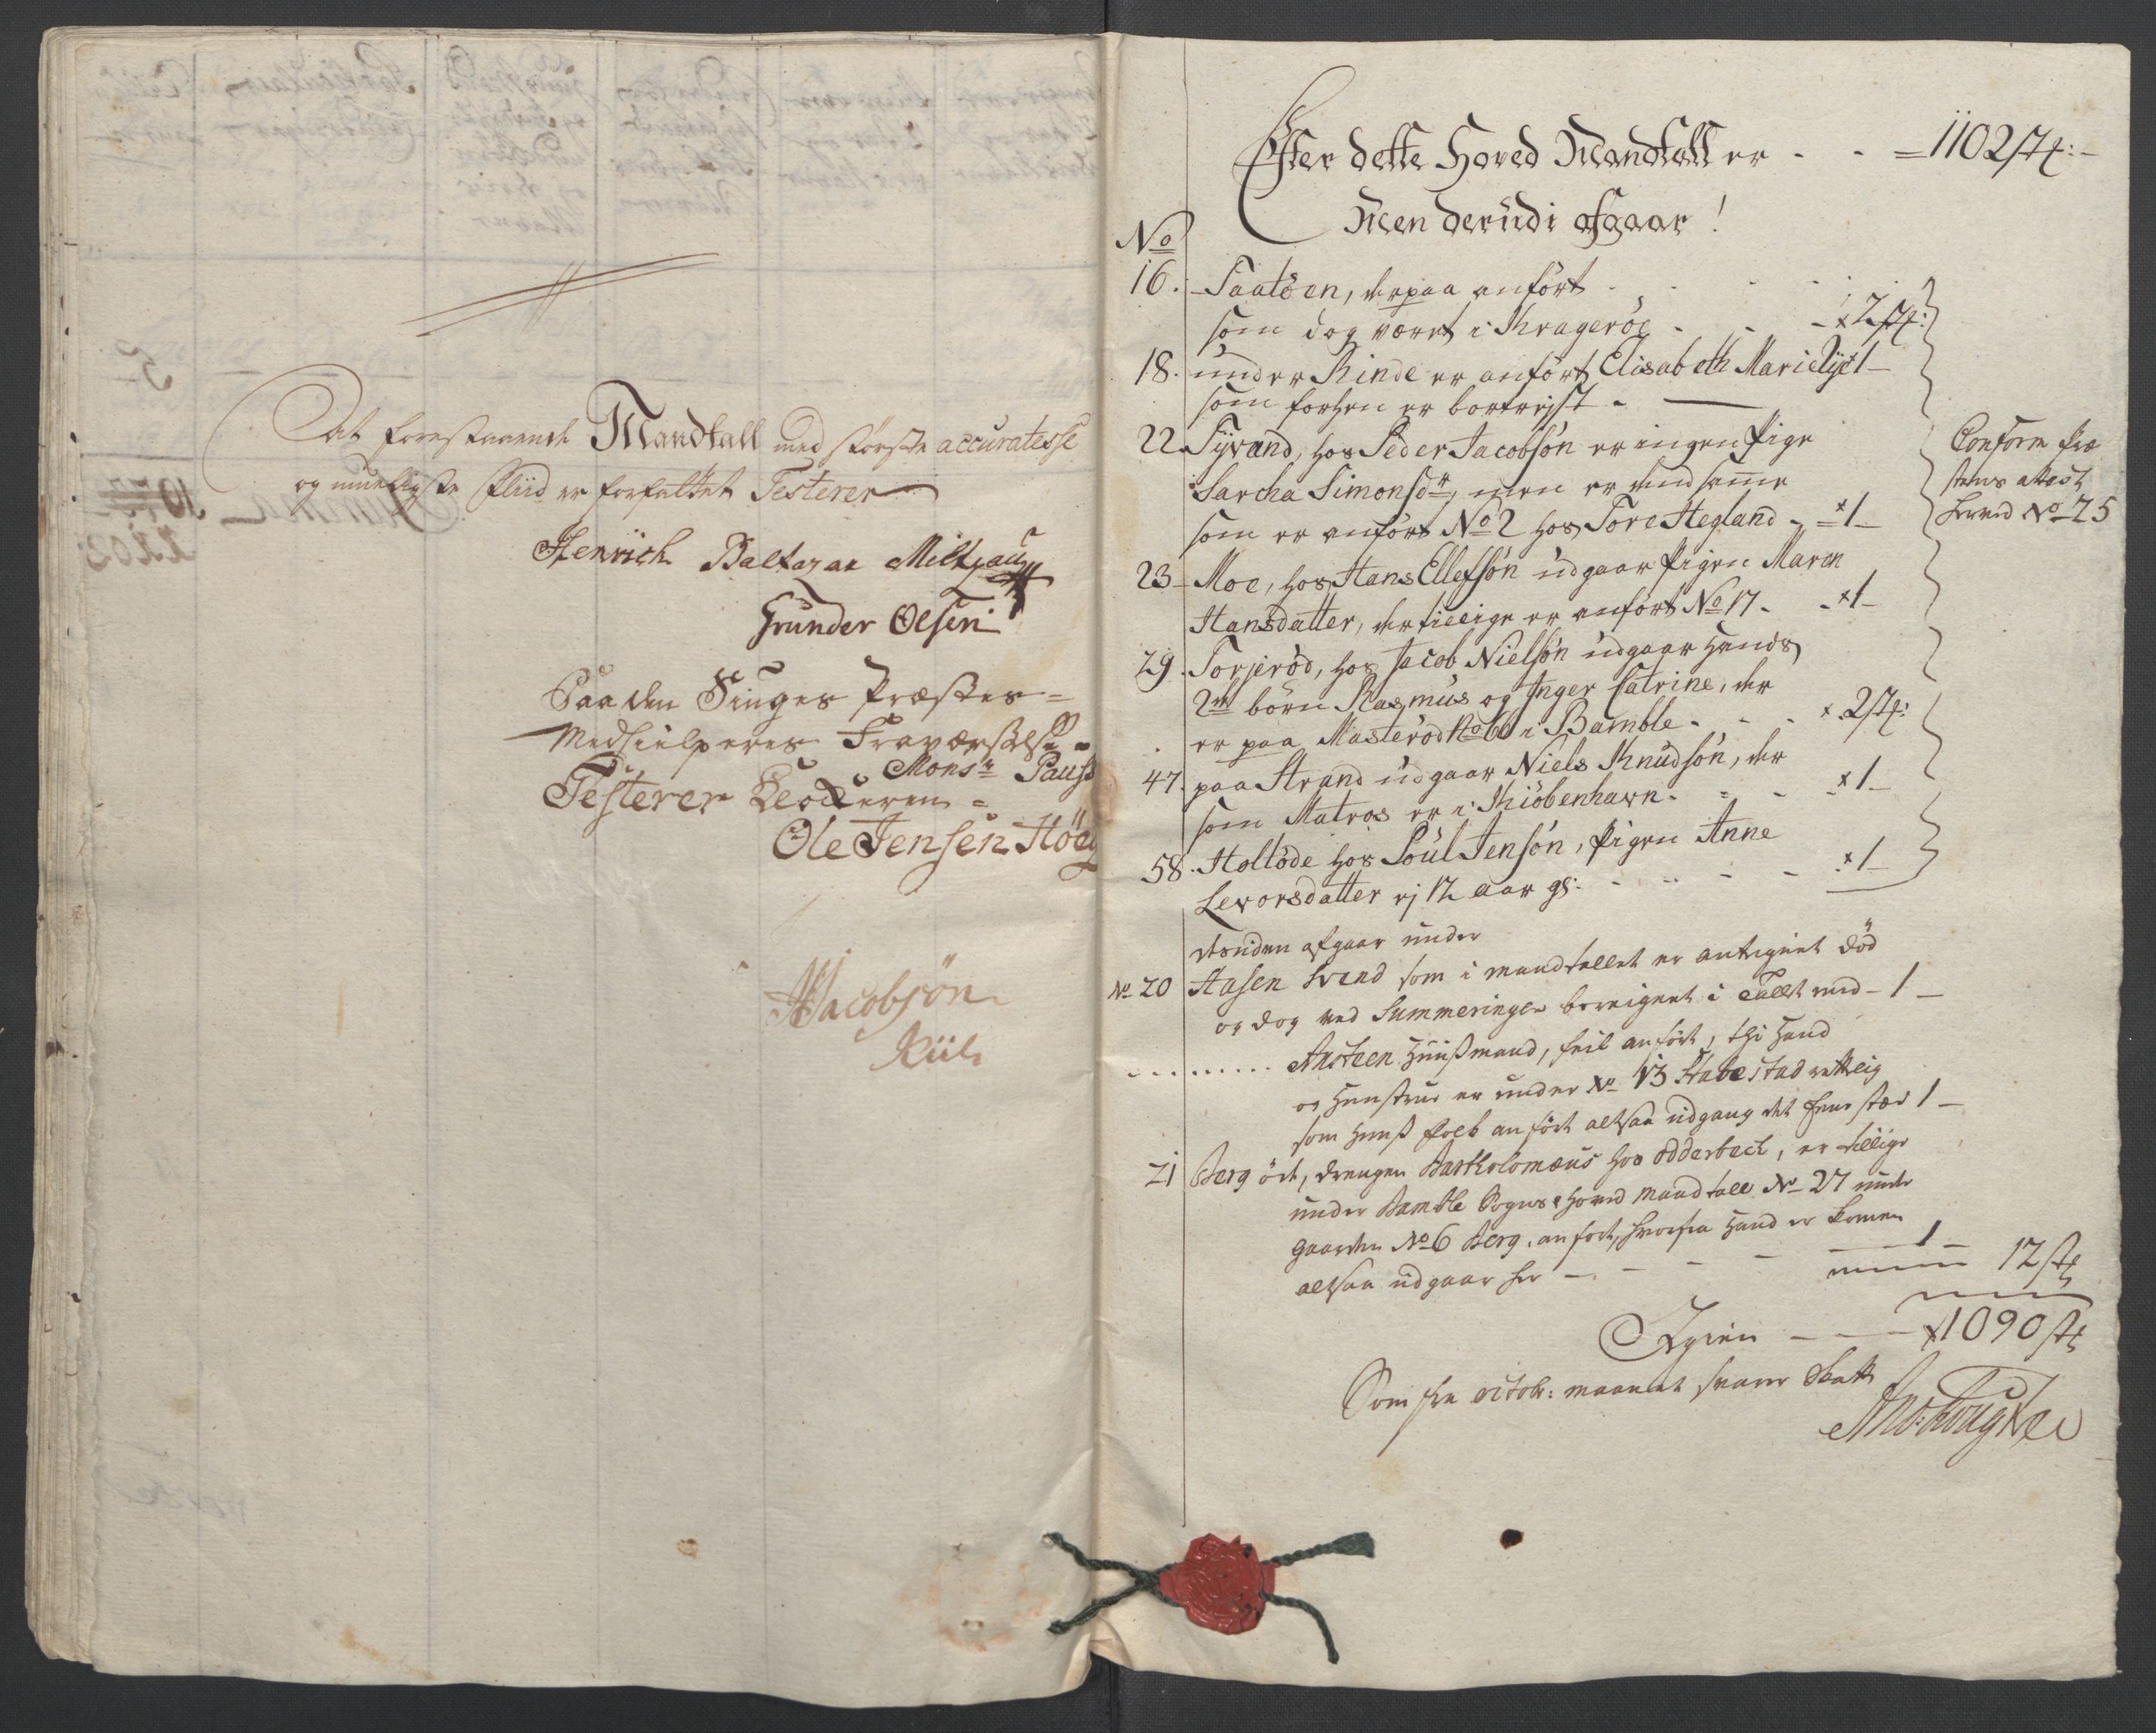 At forestaaende Mandtall med største accuratesse
og mueligste Fliid er forfattet Testerer
Henrich Baltazar Miltzau
Gunder Olsen
Paa den Siuges Præstes=
Medhielperes Fraværelse
Mons:r Pauss
Testerer Klockeren =
Ole Jensen Höeg
Jacobsön
Kiil
Efter dette Hoved Mandtall er - - = 1102 st:
Men derudi afgaar!
No
16. Saatöen, derpaa anfört
som dog været i Krageröe - - x 2 st:
18. under Rinde er anfört Elisabeth Marie x 1 -
som forhen er bortreist -
22. Tyvand, hos Peder Jacobsön er ingen Pige
Sareha Simonsd:r, men er dend samme
som er anfört No 2 hos Tore Hegland - x 1 -
Conform Præ
stens attest
herved No 25
23 - Moe, hos Hans Ellefsön udgaar Pigen Maren
Hansdatter, der tillige er anfört No 17 - x 1 -
29. Torjeröd, hos Jacob Nielsön udgaar hands
2de börn Rasmus og Inger Catrine, der
er paa Masteröd No 60 i Bamble - - x 2 st:
47. paa Strand udgaar Niels Knudsön, der
som Matros er i Kiöbenhavn - - x 1 -
58. Holtöde hos Poul Jensön, Pigen Anne
Levorsdatter ej 12 aar gl: - - - x 1 -
desuden afgaar under
No 20 Aasen Svend som i mandtallet er antegnet död
og dog ved Summeringen beregnet i Tallet med - 1 -
Ansteen Huusmand, feil anfört, thi hand
og Hunstrue er under No 13 Stabestad rettelig
som Huus folk anfört altsaa udgang det 1 -
21 Berg öde, drengen Bartholomæus hos Odderbeck, er tillige
under Bamble Sogns Hoved Mandtall No 27 under
Gaarden No 6 Berg, anfört, hvorfra hand er kommen
altsaa udgaar her - - - - 1 - 12 st
Igien - - - x 1090 st
Som fra octobr: maanet svarer Skatt